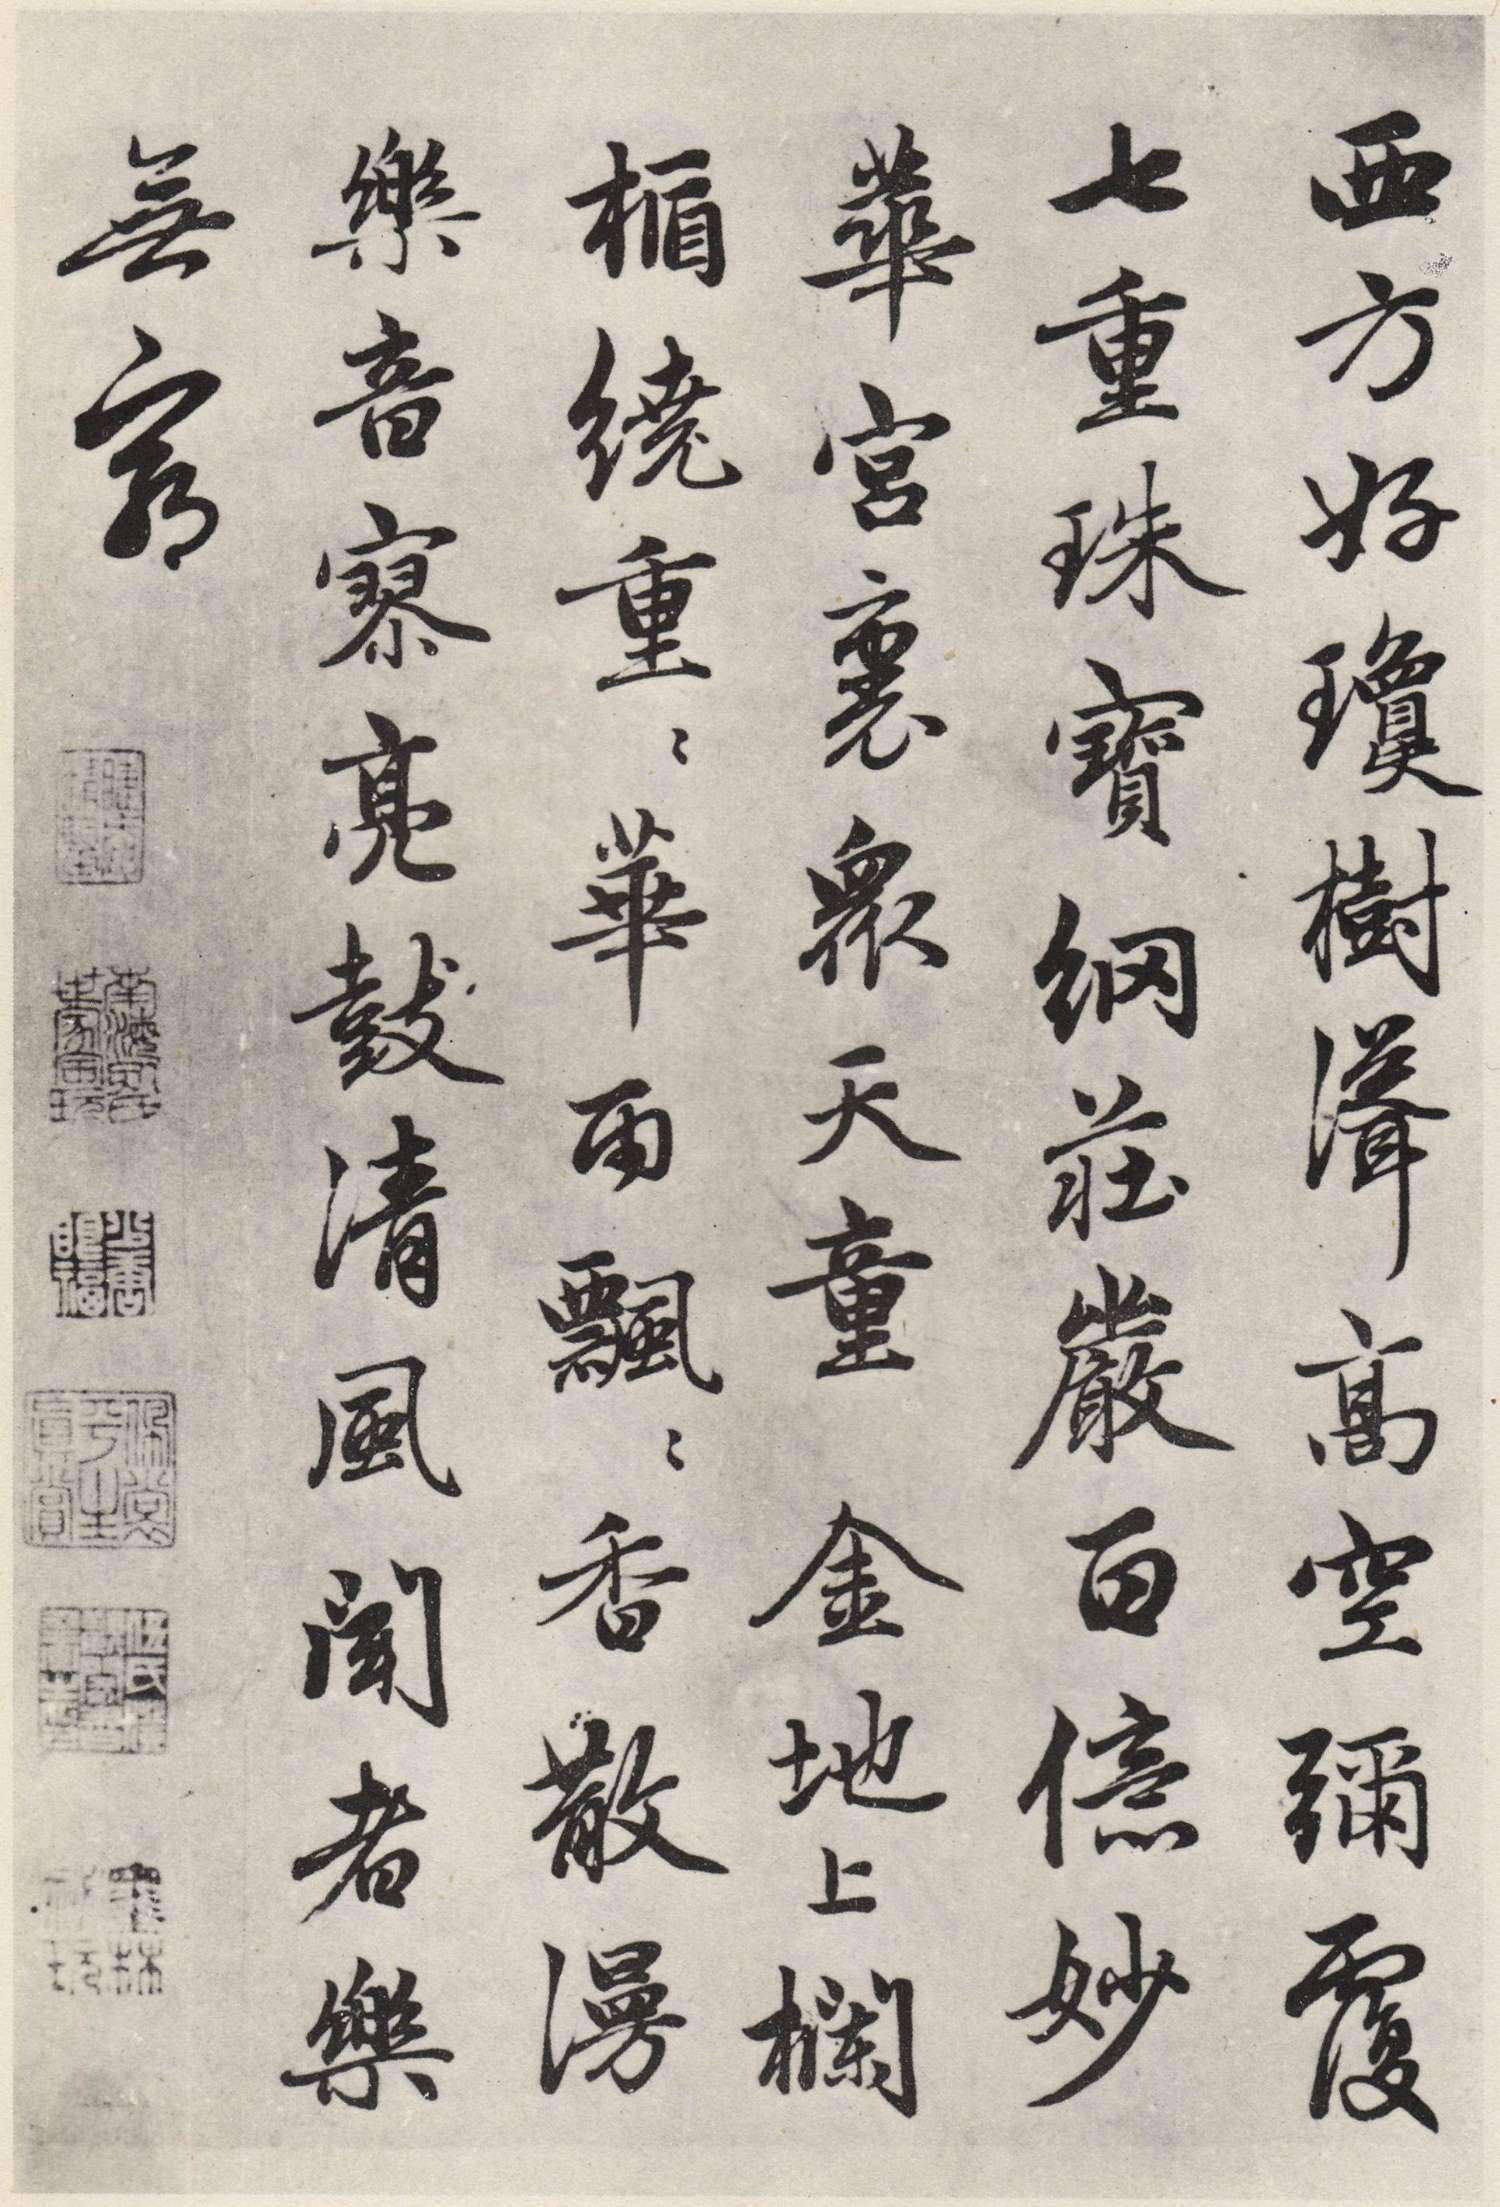 西方好瓊樹聳高空彌覆
七重珠寶網莊嚴百億妙
華宮裏眾天童 金地上欄
楯繞重〻華雨飄〻香散漫
樂音寥亮鼓清風聞者樂
無窮
墨林秘玩